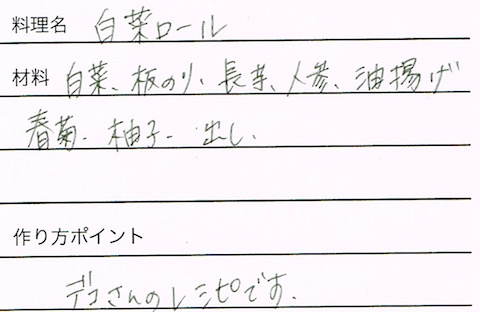 料理名 白菜ロール
材料 白菜、板のり、長芋、人参、油揚げ
春菊、柚子、出し、
作り方ポイント
デコさんのレシピです、